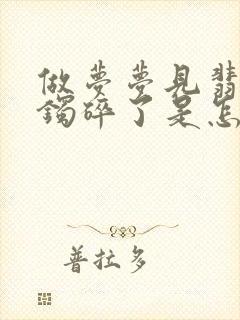 做梦梦见翡
镯碎了是怎
普拉多